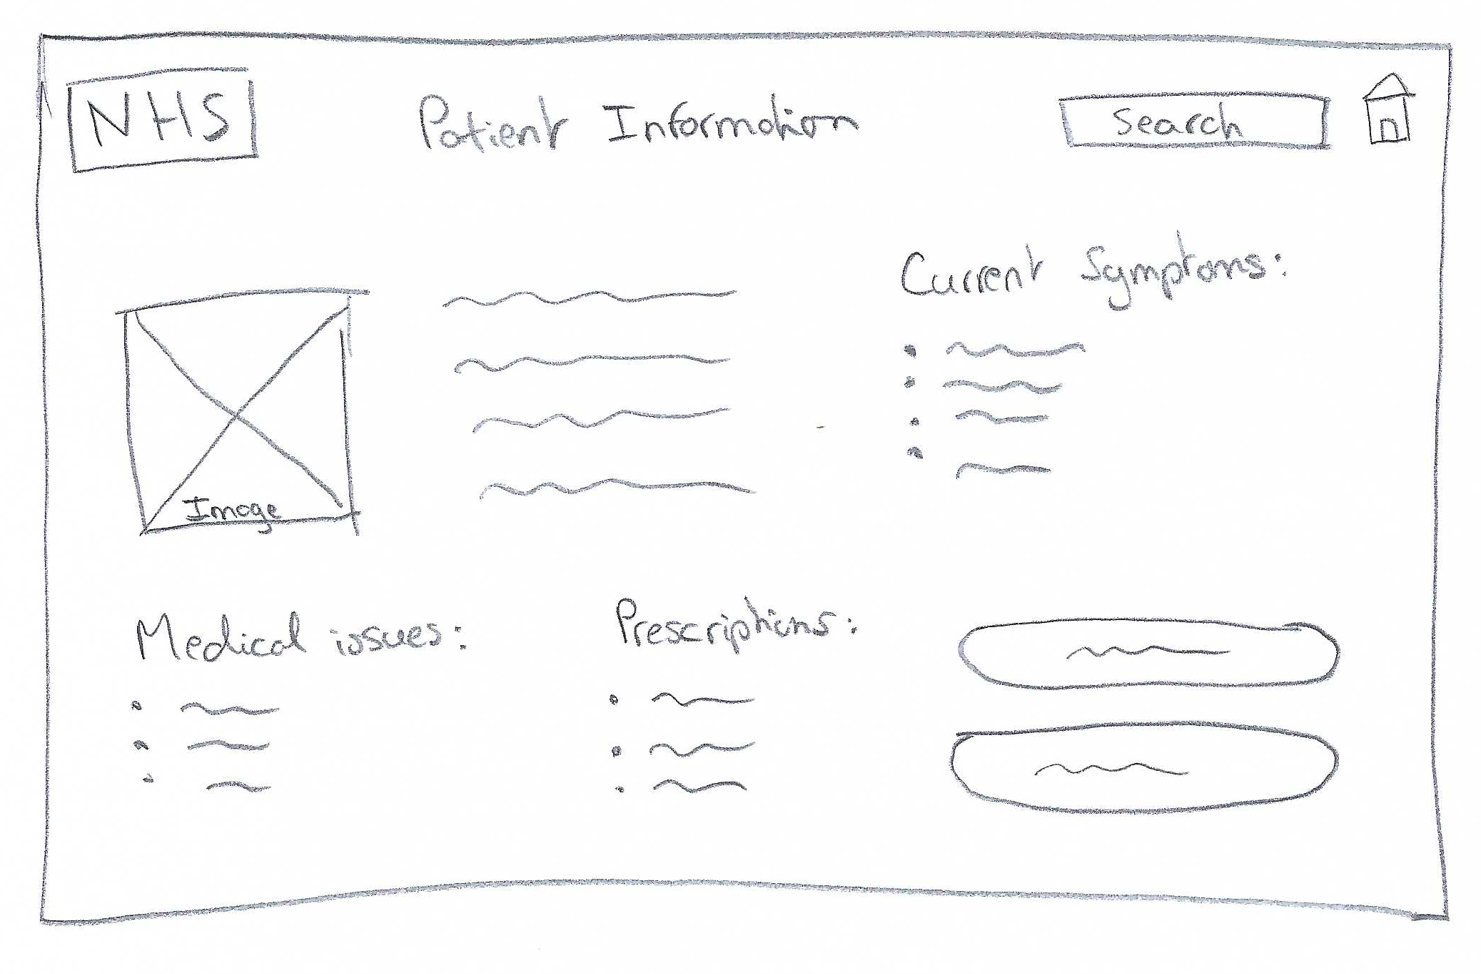 NHS
Patient Information
Search
Current Symptoms:
Image
Medical issues:
Prescriptions: